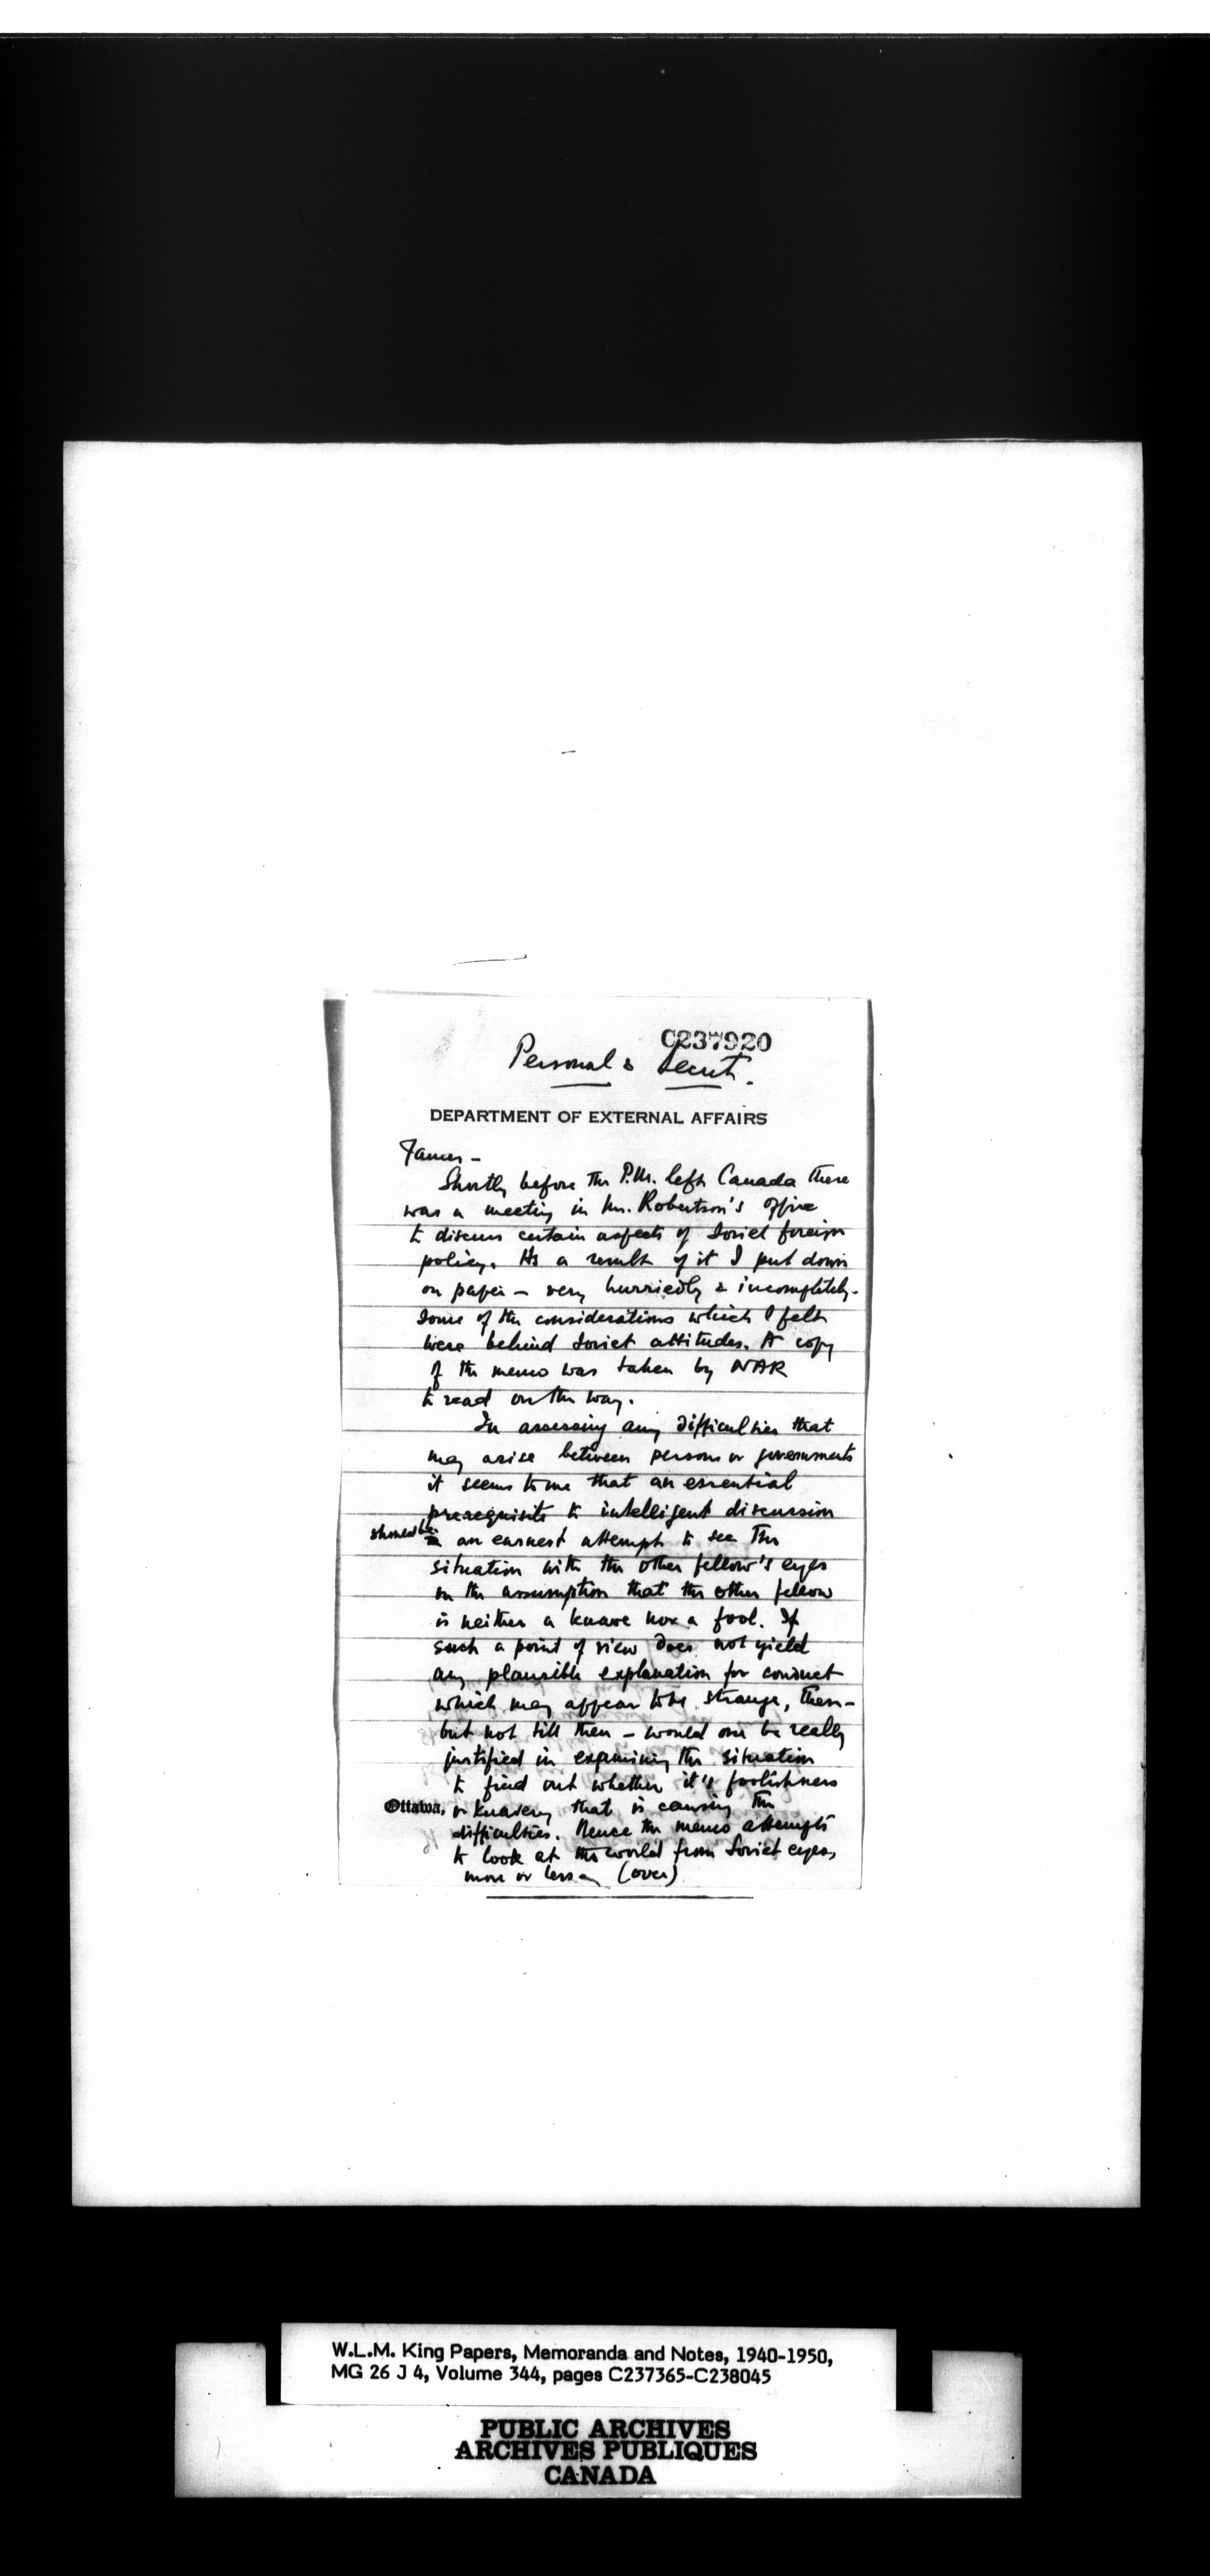 C237920
Personal & Secret.
DEPARTMENT OF EXTERNAL AFFAIRS
James –
Shortly before the P.M. left Canada there
was a meeting in Mr. Robertson's office
to discuss certain aspects of Soviet foreign
policy. As a result of it I put down
on paper – very hurriedly & incompletely –
some of the considerations which I felt
were behind Soviet attitudes. A copy
of the memo was taken by NAR
to read on the way.
In assessing any difficulties that
may arise between persons or governments
it seems to me that an essential
prerequisite to intelligent discussion
should be an earnest attempt to see the
situation with the other fellow's eyes
on the assumption that the other fellow
is neither a knave nor a fool. If
such a point of view does not yield
any plausible explanation for conduct
which may appear to be strange, then –
but not till then – would one be really
justified in examining the situation
to find out whether it's foolishness
Ottawa, or knavery that is causing the
difficulties. Hence the memo attempts
to look at the world from Soviet eyes,
more or less (over)
W.L.M. King Papers, Memoranda and Notes, 1940-1950,
MG 26 J 4, Volume 344, pages C237365-C238045
PUBLIC ARCHIVES
ARCHIVES PUBLIQUES
CANADA